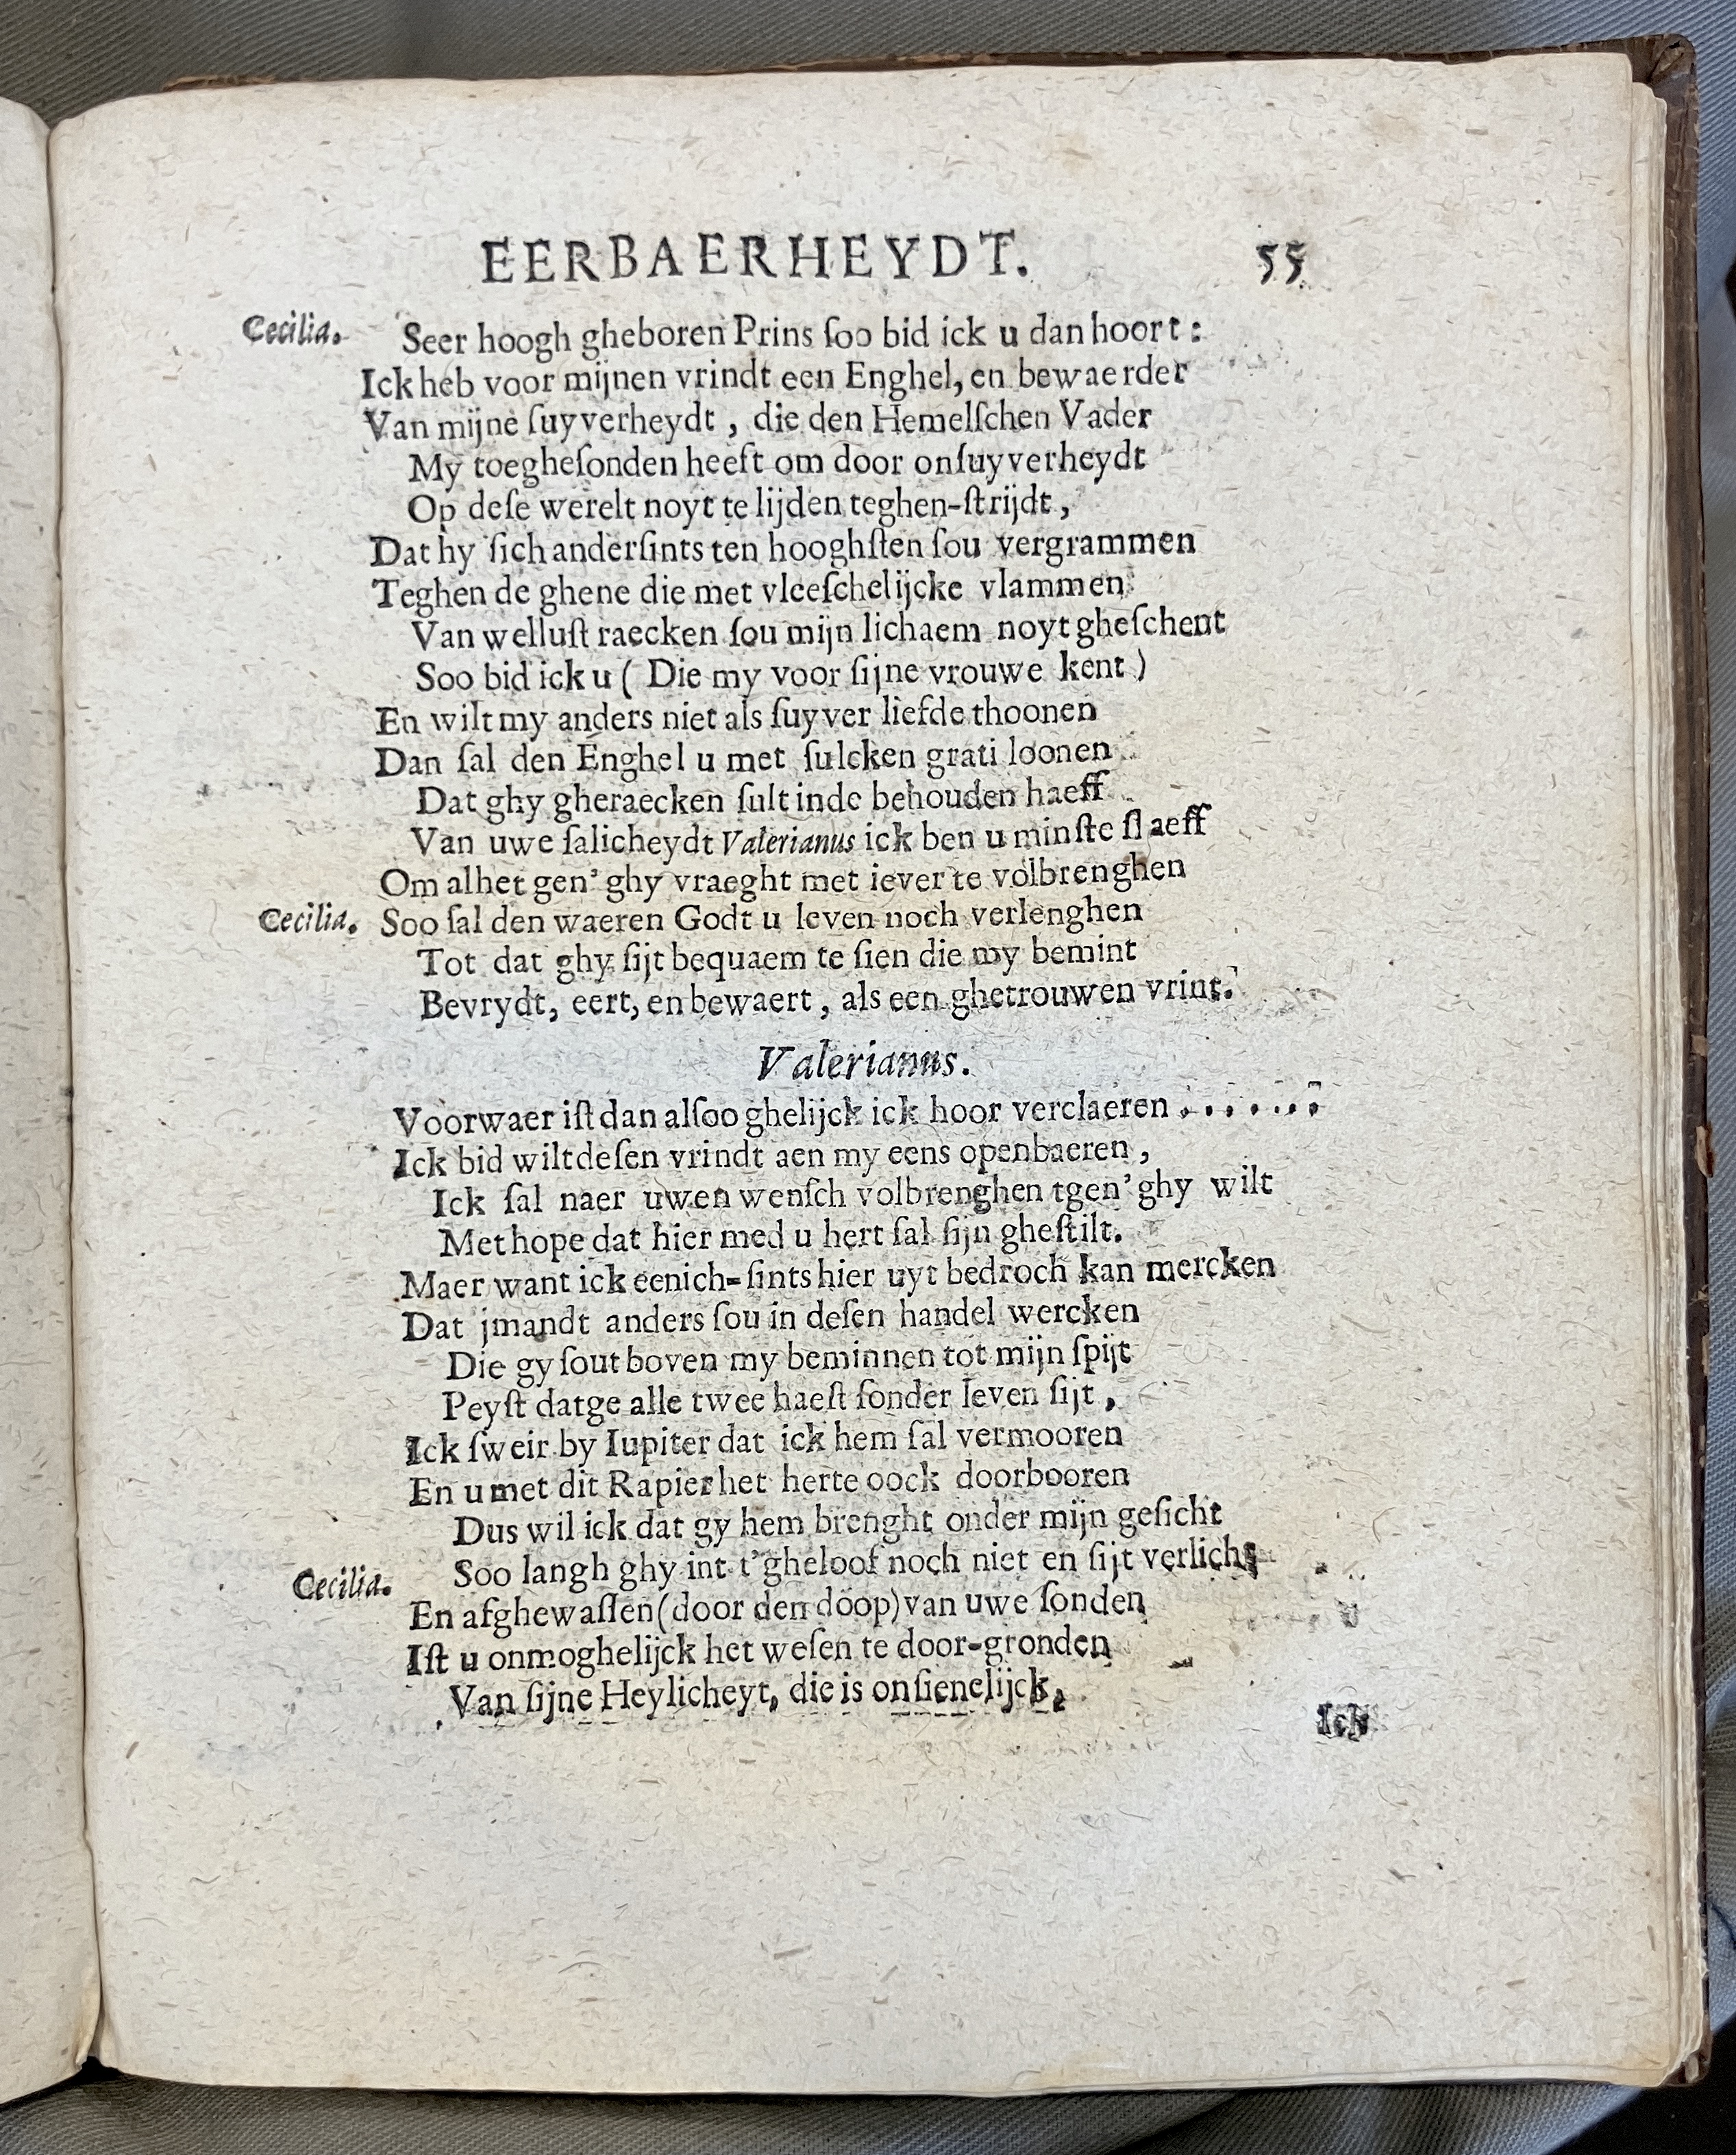 EERBAERHEYDT. 55
Cecilia. Seer hoogh gheboren Prins ſoo bid ick u dan hoort:
Ick heb voor mijnen vrindt een Enghel, en bewaerder
Van mijne ſuyverheydt, die den Hemelſchen Vader
My toegheſonden heeft om door onſuyverheydt
Op deſe werelt noyt te lijden teghen-ſtrijdt,
Dat hy ſich anderſints ten hooghſten ſou vergrammen
Teghen de ghene die met vleeſchelijcke vlammen
Van welluſt raecken ſou mijn lichaem noyt gheſchent
Soo bid ick u ( Die my voor ſijne vrouwe kent )
En wilt my anders niet als ſuyver liefde thoonen
Dan ſal den Enghel u met ſulcken grati loonen
Dat ghy gheraecken ſult inde behouden haeff
Van uwe ſalicheydt Valerianus ick ben u minſte ſlaeff
Om alhet gen' ghy vraeght met iever te volbrenghen
Cecilia. Soo ſal den waeren Godt u leven noch verlenghen
Tot dat ghy ſijt bequaem te ſien die my bemint
Bevrydt, eert, en bewaert, als een ghetrouwen vrint.
Valerianus.
Voorwaer iſt dan alſoo ghelijck ick hoor verclaeren . . . . . . ?
Ick bid wilt deſen vrindt aen my eens openbaeren,
Ick ſal naer uwen wenſch volbrenghen tgen' ghy wilt
Met hope dat hier med u hert ſal ſijn gheſtilt.
Maer want ick eenich-ſints hier uyt bedroch kan mercken
Dat jmandt anders ſou in deſen handel wercken
Die gy ſout boven my beminnen tot mijn ſpijt
Peyſt datge alle twee haeſt ſonder leven ſijt,
Ick ſweir by Iupiter dat ick hem ſal vermooren
En u met dit Rapier het herte oock doorbooren
Dus wil ick dat gy hem brenght onder mijn geſicht
Cecilia. Soo langh ghy int t'gheloof noch niet en ſijt verlicht
En afghewaſſen (door den doop) van uwe ſonden
Iſt u onmoghelijck het weſen te door-gronden
Van ſijne Heylicheyt, die is onſienelijck,
Ick